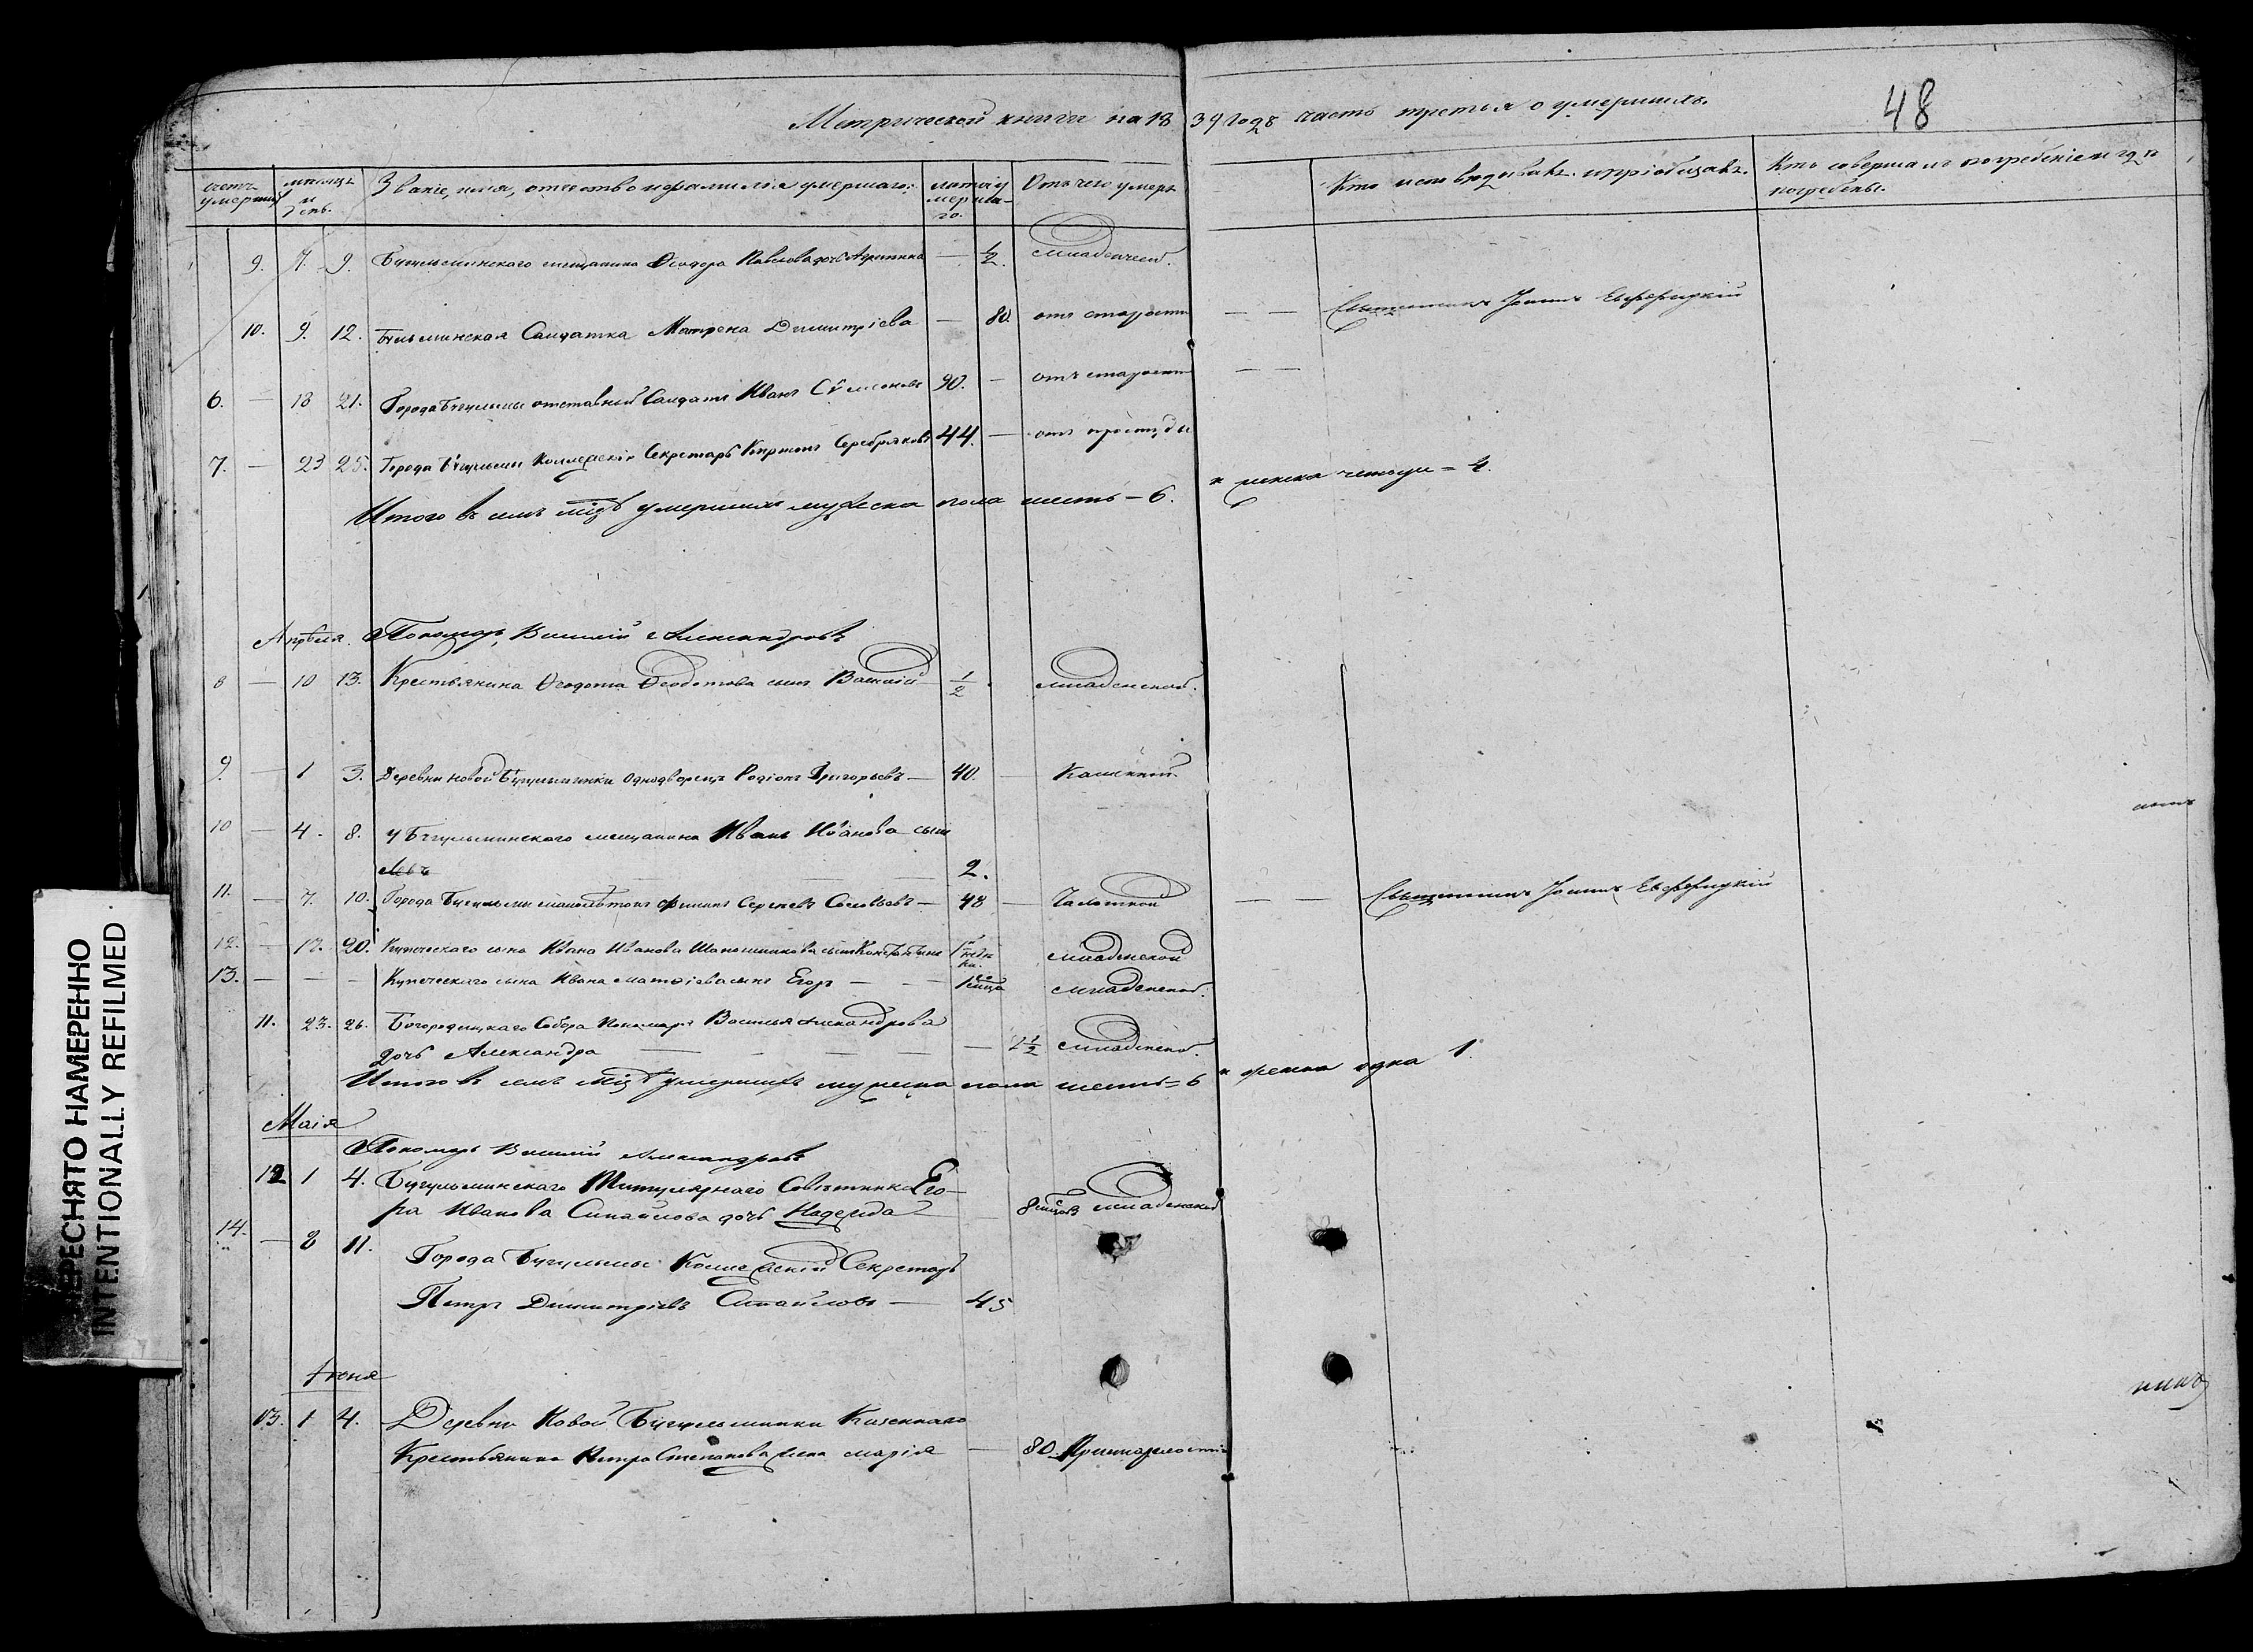 48
Метрической книги на 1839 годъ часть третья о умершихъ.
счетъ умершихъ
мѣсяцъ и день.
Званіе, имя, отчество и фамилія умершаго.
лѣта умершаго.
Отъ чего умеръ
Кто исповѣдывалъ и пріобщалъ.
Кто совершалъ погребеніе и гдѣ погребены.
9. 7. 9. Бугульминскаго мещанина Ѳеодора Павлова дочь — 1/2. младенческой.
10. 9. 12. Бугульминская Салдатка Матрена Димитріева — 80. отъ старости — — Священникъ Іоаннъ
6. — 18 21. Города Бугульмы отставный Салдатъ Иванъ Сѵмеоновъ 90. — отъ старости — —
7. — 23 25. Города Бугульмы Коллежскій Секретарь Серебряковъ 44. — отъ простуды
Итого въ семъ мцѣ умершихъ мужеска пола шесть — 6. и женска четыре = 4.
Апрѣля. Пономарь Василій Александровъ
8 — 10 13. Крестьянина Ѳеодота Ѳеодотова сынъ Василій 1/2 младенческой.
9. — 1 3. Деревни новой Бугульминки однодворецъ Родіонъ Григорьевъ — 40. —
10 — 4. 8. у Бугульминскаго мещанина Иванъ Иванова сынъ
Левъ — — — 2.
11. — 7. 10. Города Бугульмы Сергеевъ Соловьевъ — 48 — Чахоткой — — Священникъ Іоаннъ
12. — 17. 20. Купеческаго сына Ивана Иванова Шапошникова сынъ младенческой
13. — — — Купеческаго сына Ивана Матѳіева сынъ Егоръ — — 1 мца младенческой.
11. 23. 26. Богородицкаго Собора Пономаря Василья Александрова
дочь Александра — — — — — 2 1/2 младенческой.
Итого въ семъ мцѣ умершихъ мужеска пола шесть = 6 и женска одна 1.
Маія
Пономарь Василій Александровъ
12 1 4. Бугульминскаго Титулярнаго Совѣтника Его-
ра Иванова Синайлова дочь Надежда — 8 мцовъ младенческой
14. — 8 11. Города Бугульмы Коллежскій Секретарь
Петръ Димитріевъ — 45
Іюня
13. 1 4. Деревни Новой Бугульминки Казеннаго
Крестьянина Петра Степанова жена Марія — 80.
ПЕРЕСНЯТО НАМЕРЕННО
INTENTIONALLY REFILMED